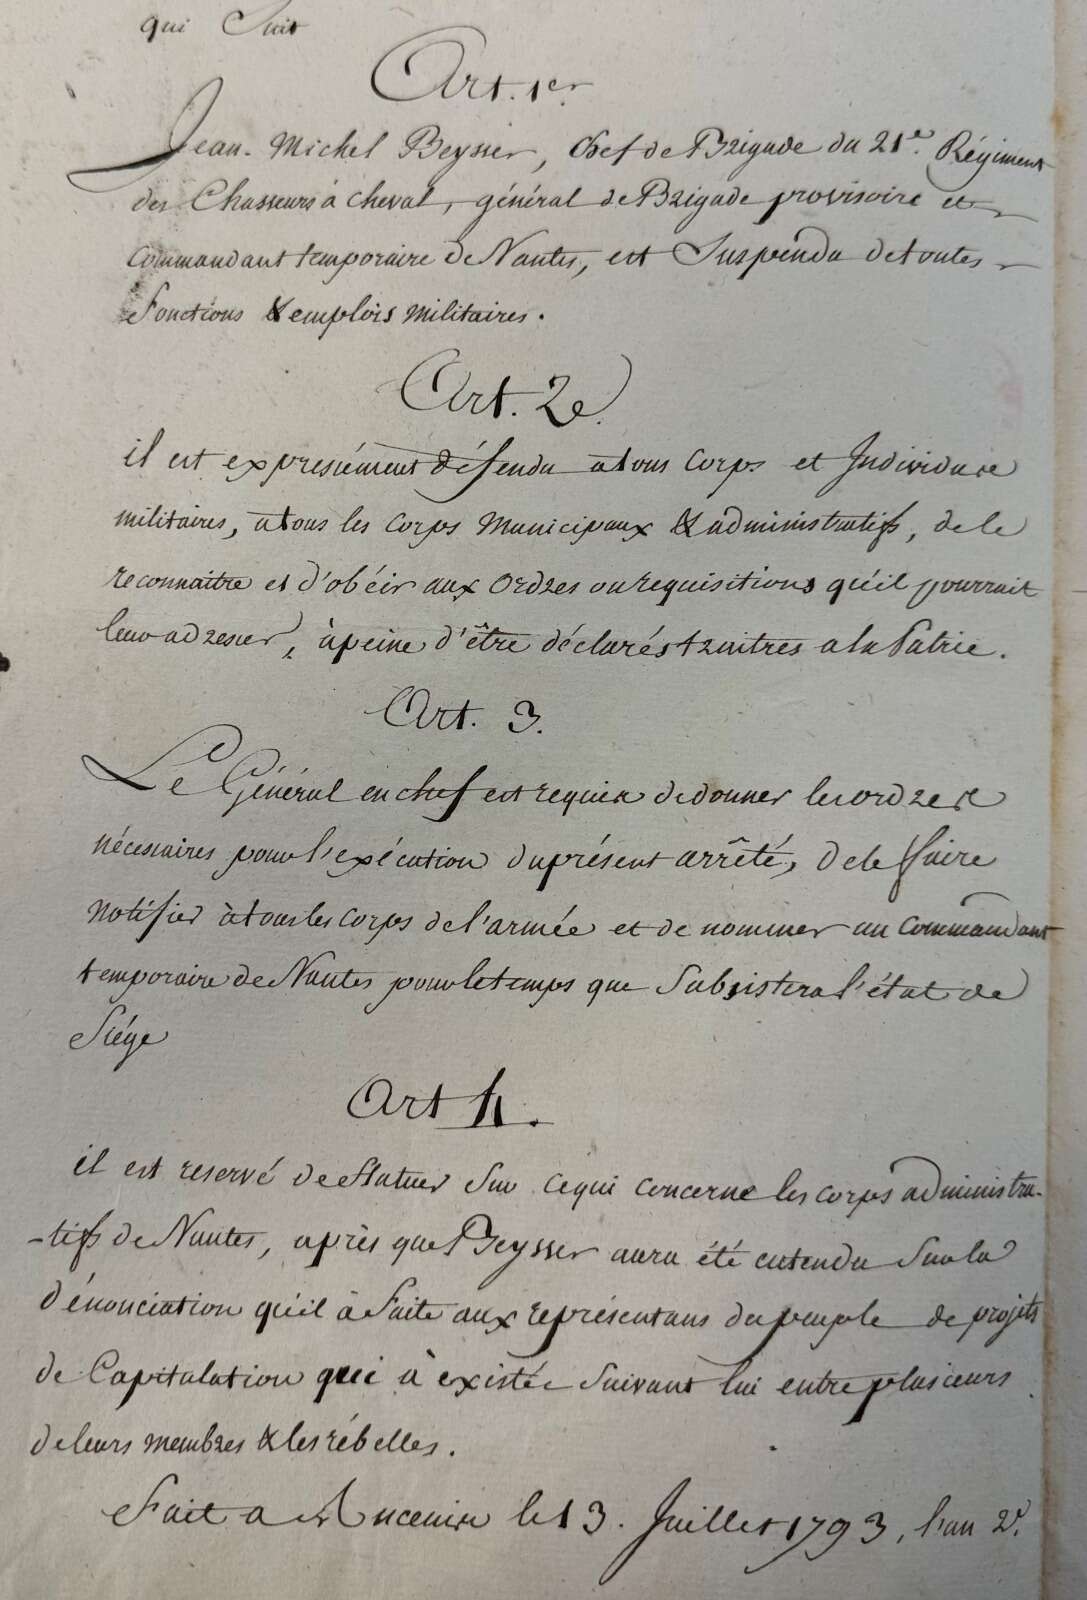 qui Suit
Art. 1er
Jean-Michel Beysser, Chef de Brigade du 21e. Régiment
des Chasseurs à cheval, général de Brigade provisoire et
commandant temporaire de Nantes, est Suspendu de toutes
fonctions & emplois militaires.
Art. 2e.
il est expressément défendu a tous Corps et Individus
militaires, a tous les Corps Municipaux & administratifs, de le
reconnaitre et d'obéir aux Ordres ou requisitions qu'il pourrait
leur adresser, à peine d'être déclarés traitres a la Patrie.
Art. 3.
Le Général en chef est requis de donner les ordres
nécessaires pour l'exécution du présent arrêté, de le faire
notifier à tous les Corps de l'armée et de nommer un Commandant
temporaire de Nantes pour le temps que Subsistera l'état de
Siége
Art 4.
il est reservé de Statuer Sur ce qui concerne les corps administra-
-tifs de Nantes, après que Beysser aura été entendu Sur la
dénonciation qu'il à faite aux représentans du peuple de projets
de Capitulation qui à existée suivant lui entre plusieurs
de leurs membres & les rébelles.
Fait a Ancenis le 13. Juillet 1793, l'an 2e.